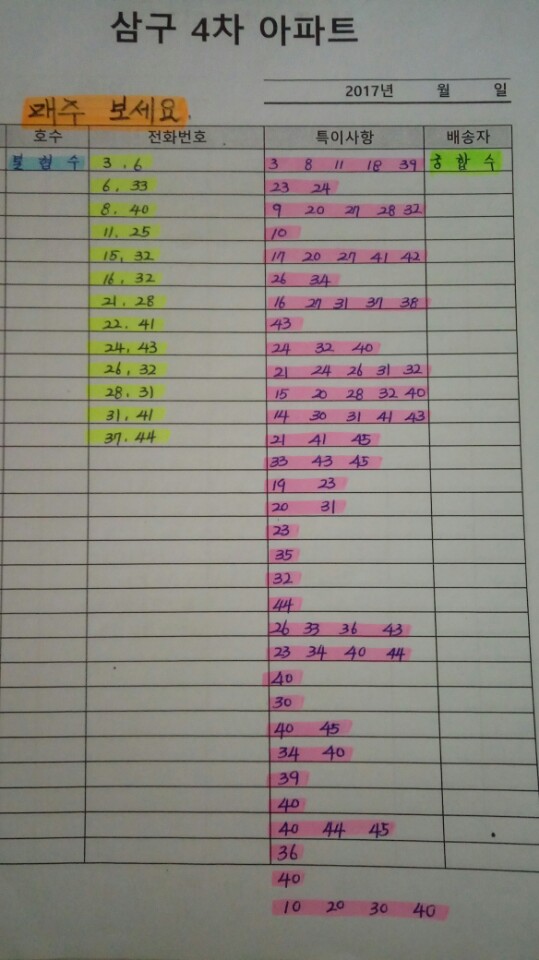 삼구 4차 아파트
2017년 월 일
매주 보세요.
호수 전화번호 특이사항 배송자
3. 6 3 8 11 18 39 궁합수
6. 33 23 24
8. 40 9 20 27 28 32
11. 25 10
15, 32 17 20 27 41 42
16, 32 26 34
21. 28 16 27 31 37 38
22. 41 43
24, 43 24 32 40
26, 32 21 24 26 31 32
28. 31 15 20 28 32 40
31. 41 14 30 31 41 43
37. 44 21 41 45
33 43 45
19 23
20 31
23
35
32
44
26 33 36 43
23 34 40 44
40
30
40 45
34 40
39
40
40 44 45
36
40
10 20 30 40